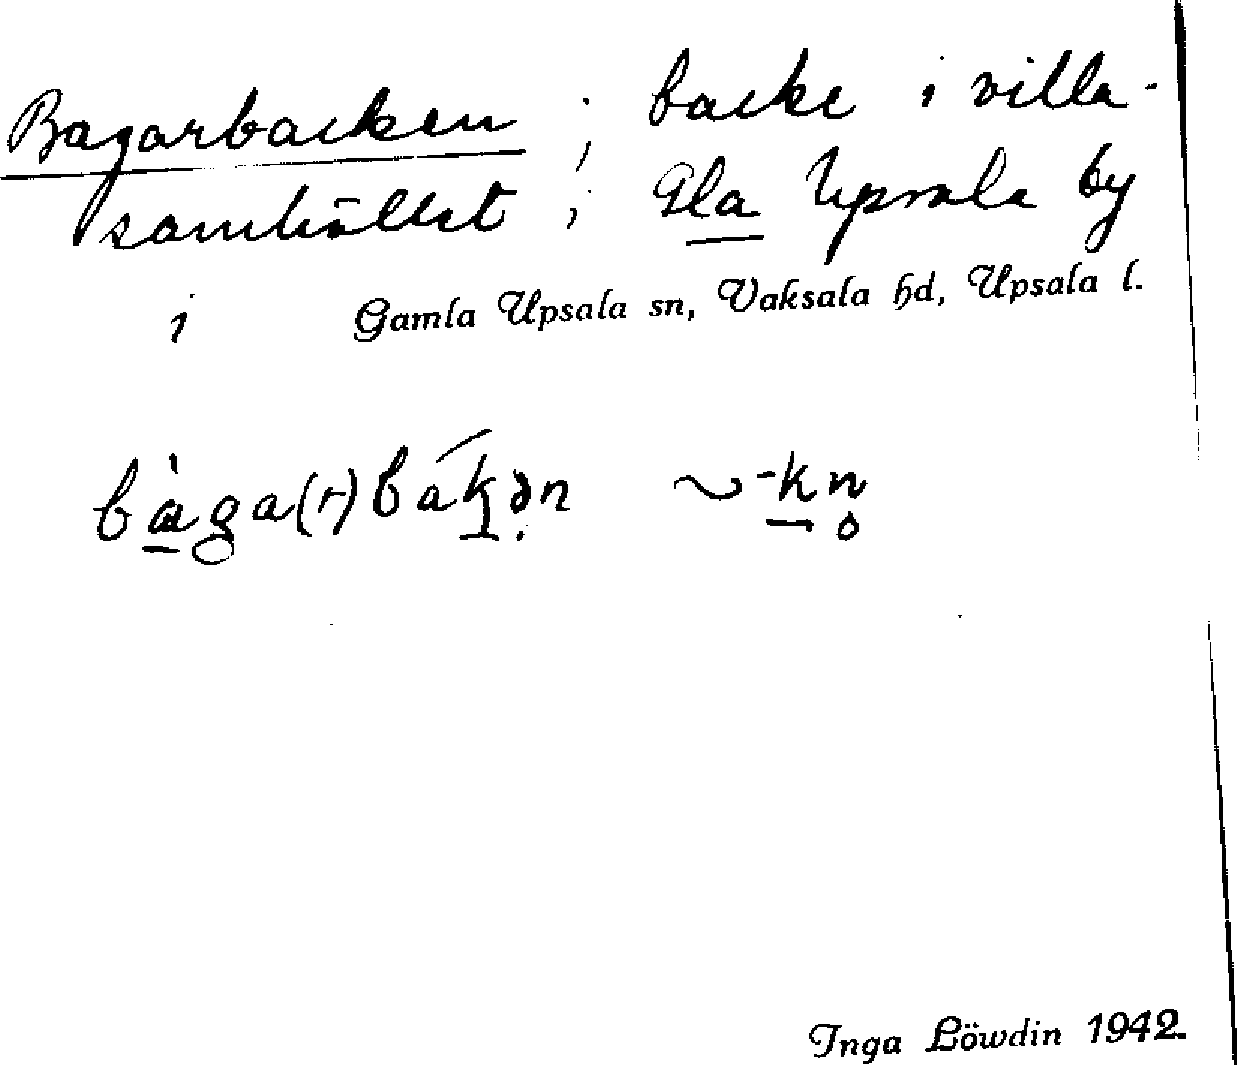 Bagarbacken ; backe i villa-
samhället ; Gla Upsala by
i Gamla Upsala sn, Vaksala hd, Upsala l.
bàga(r)bákən ~ -kn̥
Inga Löwdin 1942.